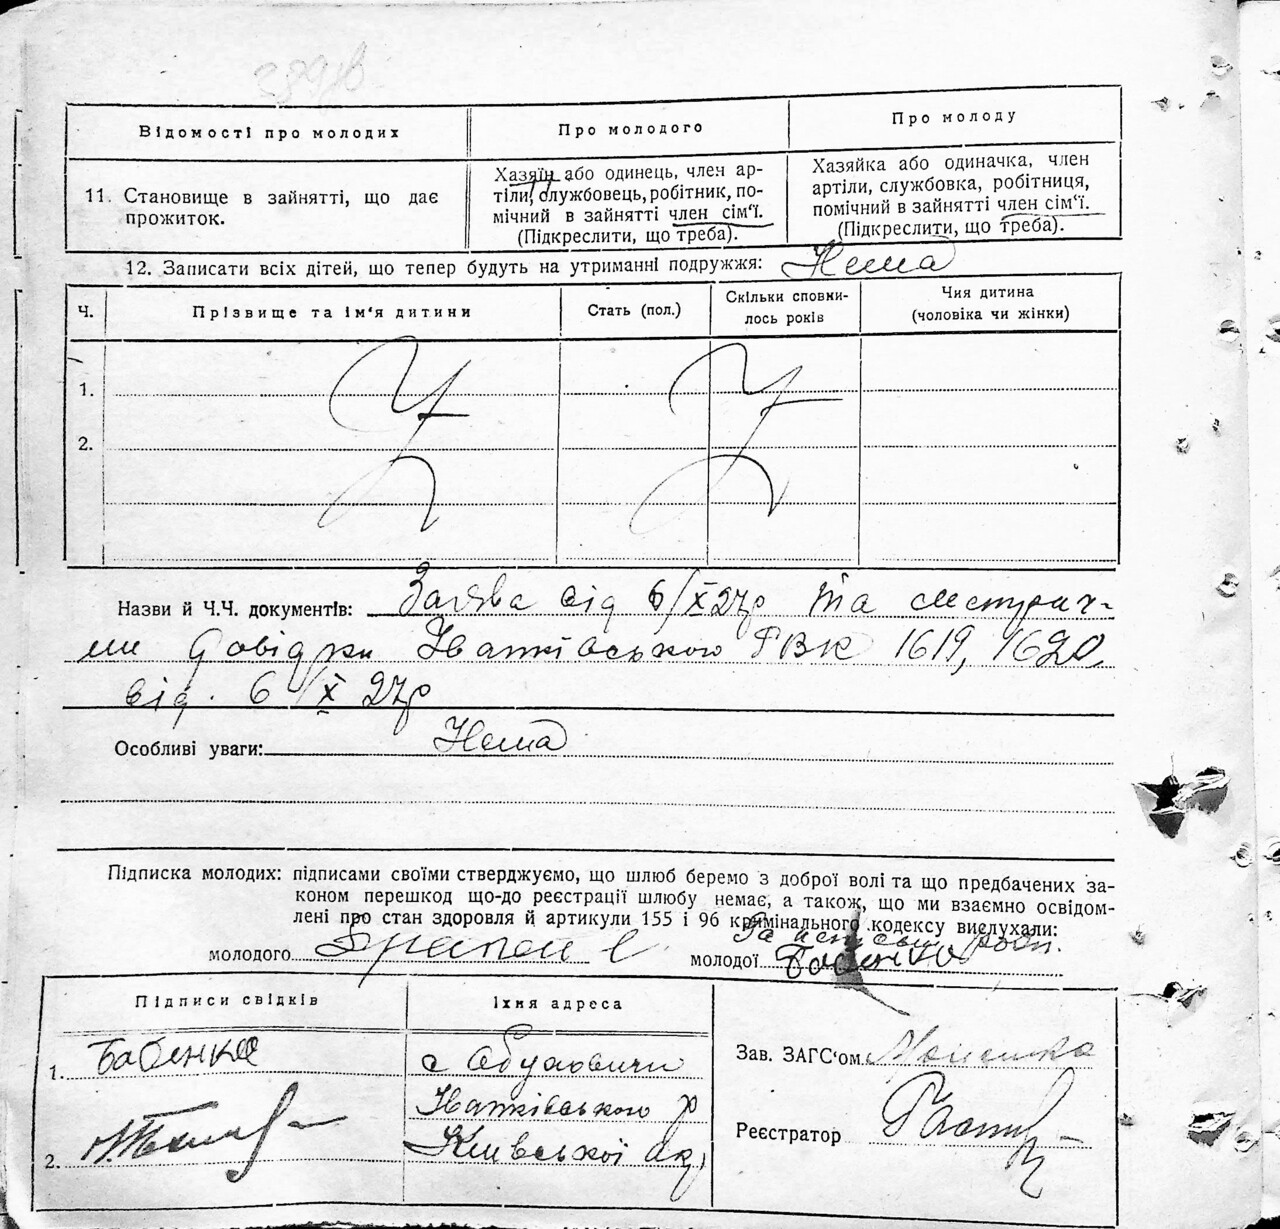 Відомості про молодих
Про молодого
Про молоду
11. Становище в зайнятті, що дає
прожиток.
Хазяїн або одинець, член ар-
тіли, службовець, робітник, по-
мічний в зайнятті член сім'ї.
(Підкреслити, що треба).
Хазяйка або одиначка, член
артіли, службовка, робітниця,
помічний в зайнятті член сім'ї.
(Підкреслити, що треба).
12. Записати всіх дітей, що тепер будуть на утриманні подружжя: Нема
Ч.
Прізвище та ім'я дитини
Стать (пол.)
Скільки сповни-
лось років
Чия дитина
(чоловіка чи жінки)
1.
2.
Назви й Ч.Ч. документів: Заява від 6/X 27р та
довідки Іванківського РВК 1619, 1620
від. 6/X 27р
Особливі уваги: Нема
Підписка молодих: підписами своїми стверджуємо, що шлюб беремо з доброї волі та що предбачених за-
коном перешкод що-до реєстрації шлюбу немає, а також, що ми взаємно освідом-
лені про стан здоровля й артикули 155 і 96 крімінального кодексу вислухали:
молодого
молодої
Підписи свідків
Їхня адреса
1. Бабенко
с Обуховичи
Іванківського р
2.
Київської ок,
Зав. ЗАГС'ом
Реєстратор